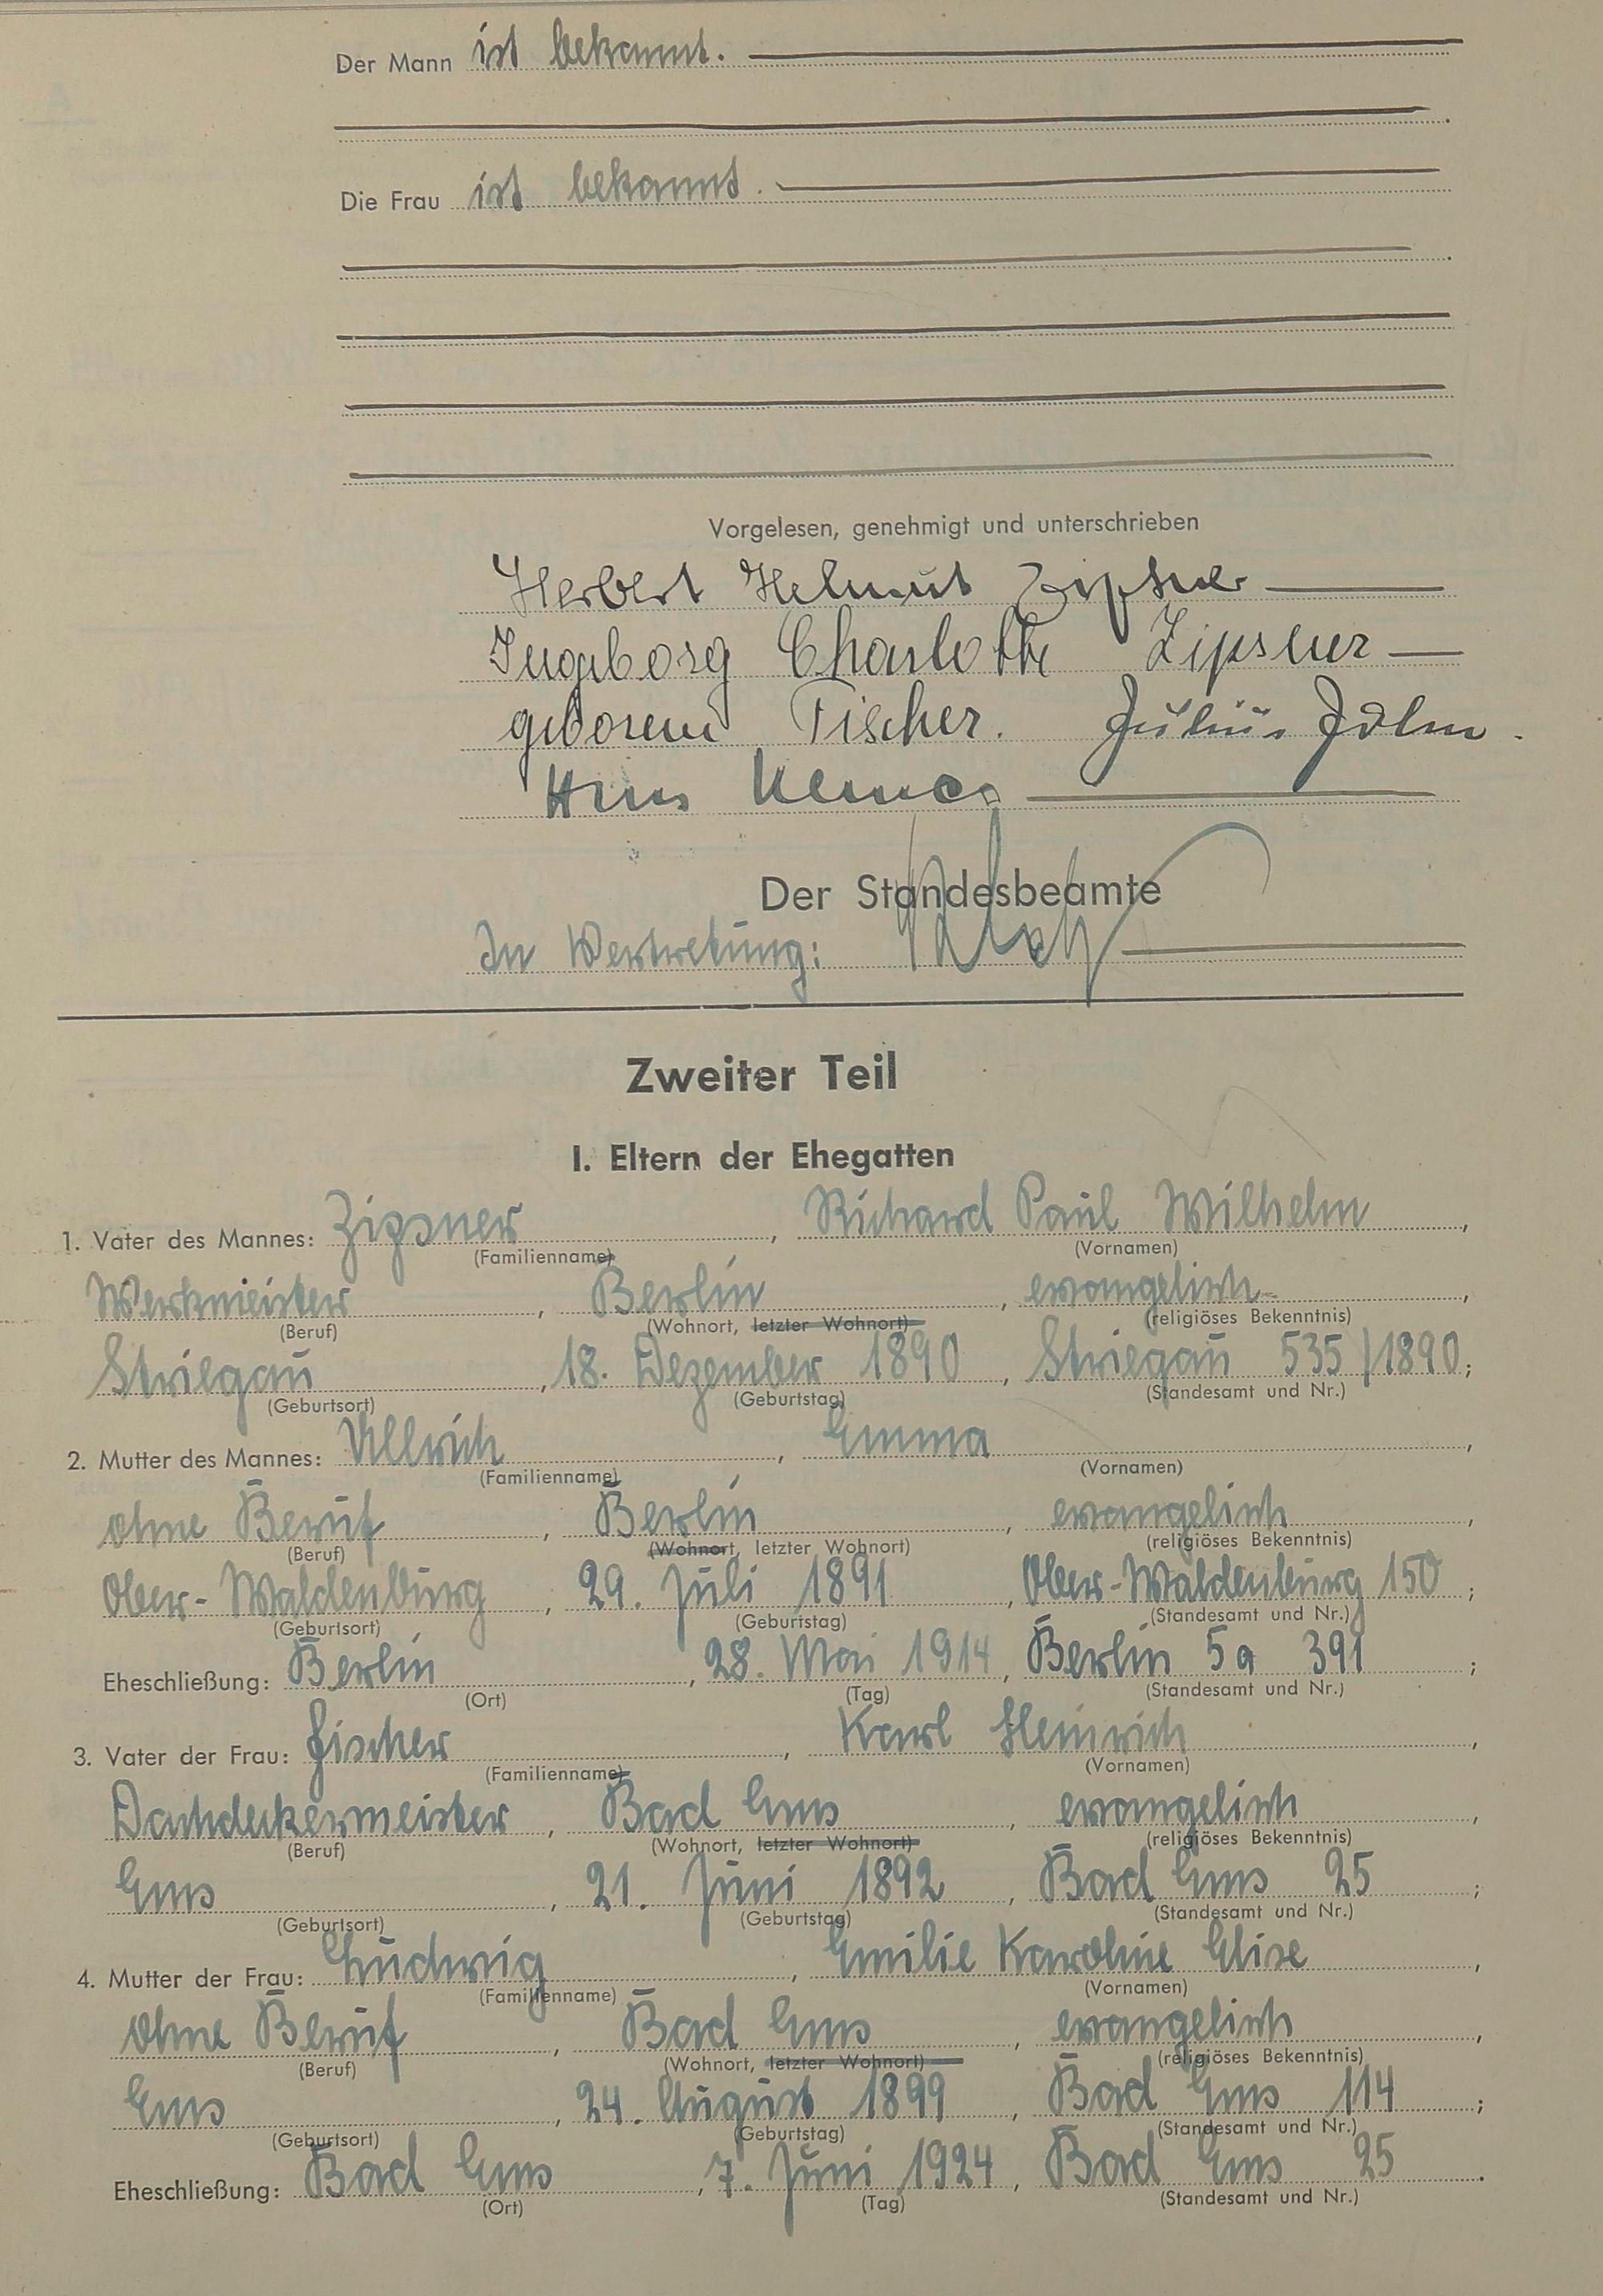 Der Mann ist bekannt.
Die Frau ist bekannt.
Vorgelesen, genehmigt und unterschrieben
Herbert Helmut Zipsner
Ingeborg Charlotte Zipsner
geborene Fischer. Julius
Der Standesbeamte
In Vertretung:
Zweiter Teil
I. Eltern der Ehegatten
1. Vater des Mannes: Zipsner, Richard Paul Wilhelm,
(Familienname) (Vornamen)
Werkmeister, Berlin, evangelisch,
(Beruf) (Wohnort, letzter Wohnort) (religiöses Bekenntnis)
Striegau, 18. Dezember 1890, Striegau 535/1890;
(Geburtsort) (Geburtstag) (Standesamt und Nr.)
2. Mutter des Mannes: Ullrich, Emma,
(Familienname) (Vornamen)
ohne Beruf, Berlin, evangelisch,
(Beruf) (Wohnort, letzter Wohnort) (religiöses Bekenntnis)
Ober-Waldenburg, 29. Juli 1891, Ober-Waldenburg 150;
(Geburtsort) (Geburtstag) (Standesamt und Nr.)
Eheschließung: Berlin, 28. Mai 1914, Berlin 5a 391;
(Ort) (Tag) (Standesamt und Nr.)
3. Vater der Frau: Fischer, Karl Heinrich,
(Familienname) (Vornamen)
Dachdeckermeister, Bad Ems, evangelisch,
(Beruf) (Wohnort, letzter Wohnort) (religiöses Bekenntnis)
Ems, 21. Juni 1892, Bad Ems 25;
(Geburtsort) (Geburtstag) (Standesamt und Nr.)
4. Mutter der Frau: Ludwig, Emilie Karoline Elise,
(Familienname) (Vornamen)
ohne Beruf, Bad Ems, evangelisch,
(Beruf) (Wohnort, letzter Wohnort) (religiöses Bekenntnis)
Ems, 24. August 1899, Bad Ems 114;
(Geburtsort) (Geburtstag) (Standesamt und Nr.)
Eheschließung: Bad Ems, 7. Juni 1924, Bad Ems 25.
(Ort) (Tag) (Standesamt und Nr.)